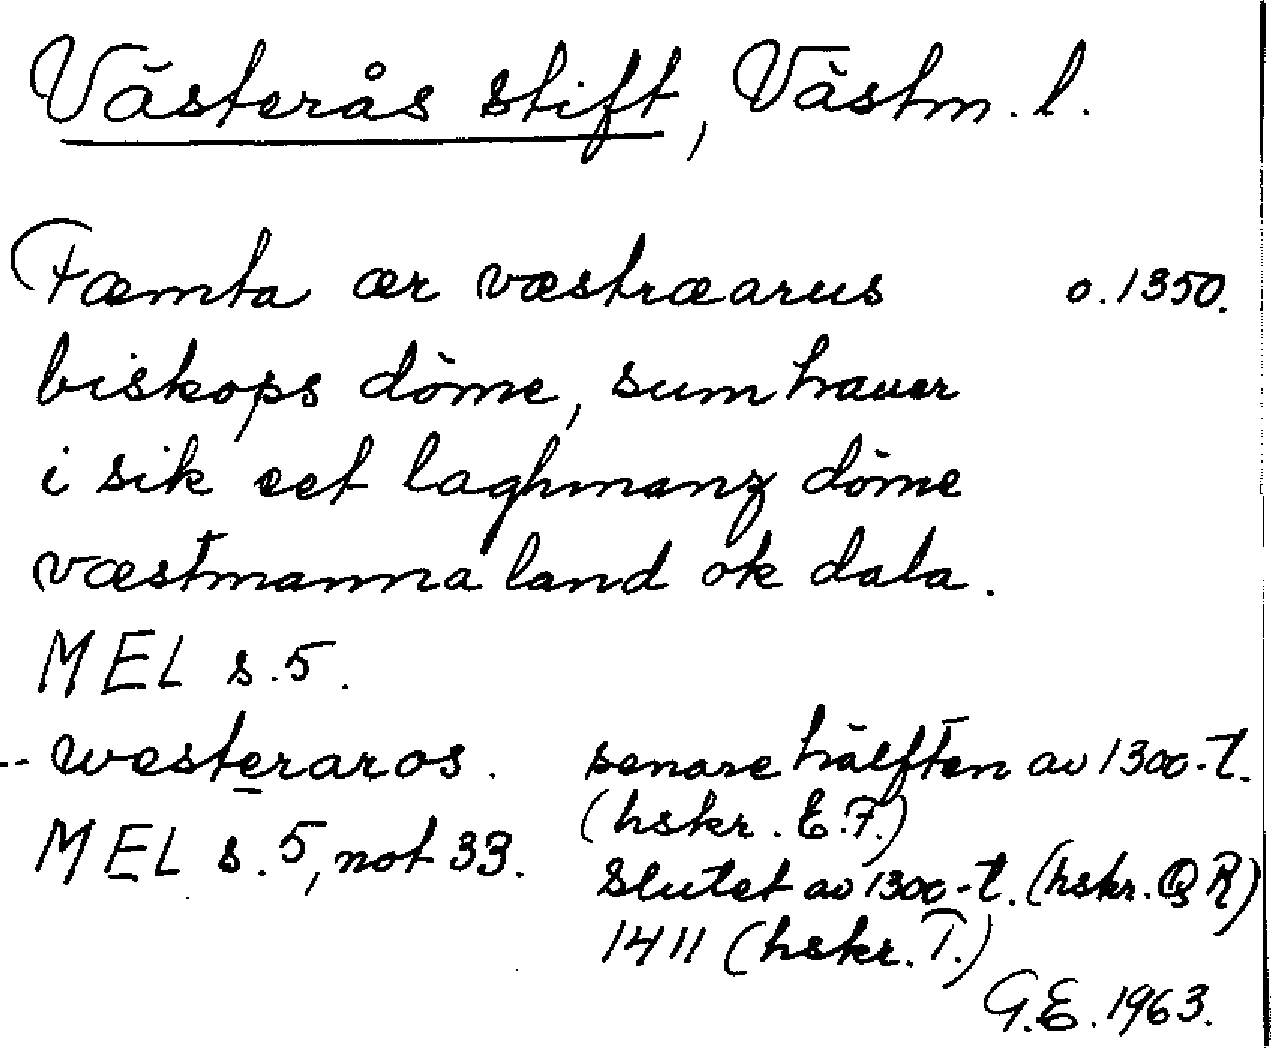 Västerås stift, Västm. l.
Fæmta ær væstræarus o. 1350.
biskops döme, sum hauer
i sik eet laghmanz döme
væstmanna land ok dala.
MEL s. 5.
-- westeraros. senare hälften av 1300-t.
(hskr. E.F.)
MEL s. 5, not 33. Slutet av 1300-t. (hskr. Q R)
1411 (hskr. T.)
G.E. 1963.